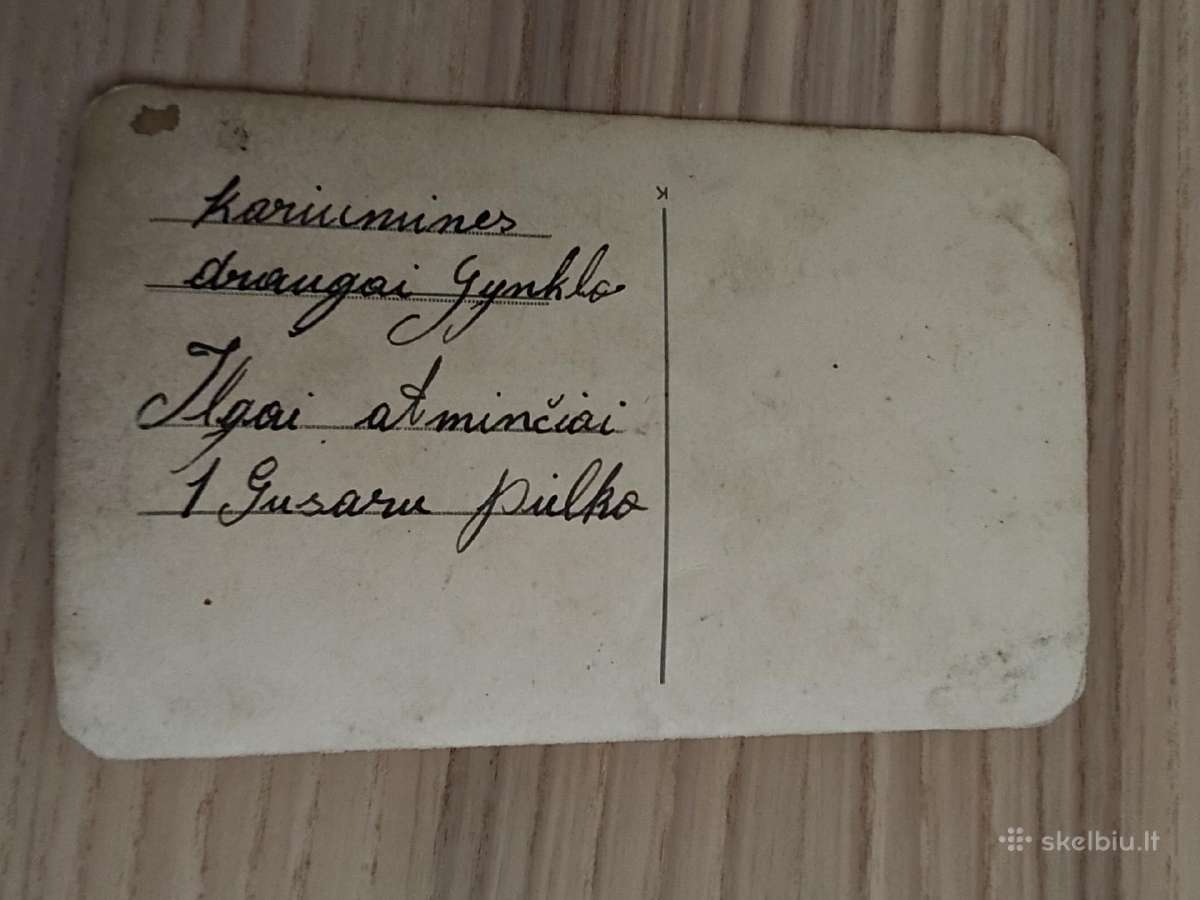 kariumines
draugai Gynklo
Ilgai atminčiai
1 Gusaru pulko
K
skelbiu.lt